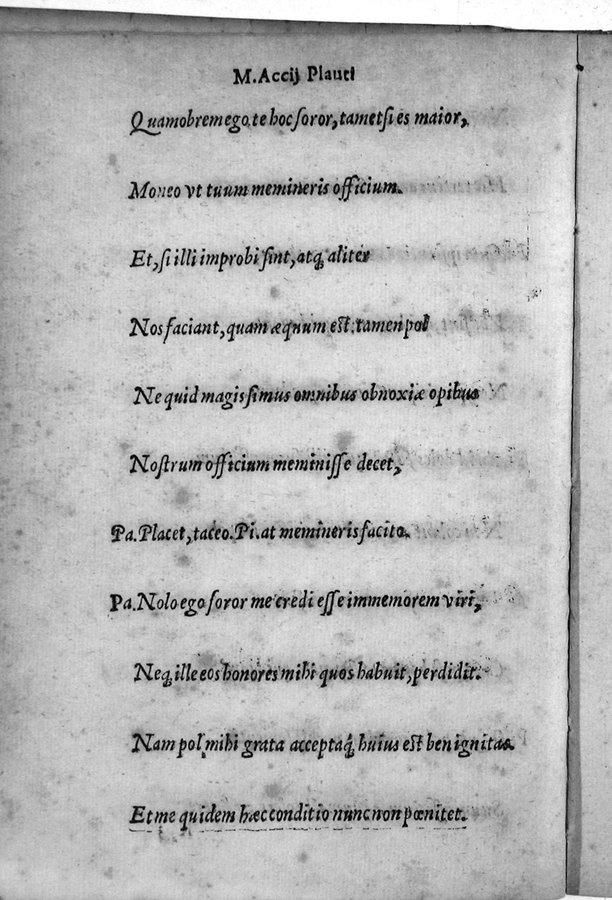 M. Accij Plauti
Quamobrem ego te hoc soror, tametsi es maior,
Moneo vt tuum memineris officium.
Et, si illi improbi sint, atq̃ aliter
Nos faciant, quam æquum est: tamen pol
Ne quid magis simus omnibus obnoxiæ opibus
Nostrum officium meminisse decet,
Pa. Placet, taceo. Pi. at memineris facito.
Pa. Nolo ego soror me credi esse immemorem viri,
Neq̃ ille eos honores mihi quos habuit, perdidit.
Nam pol mihi grata acceptaq̃ huius est benignitas.
Et me quidem hæc conditio nunc non pœnitet.